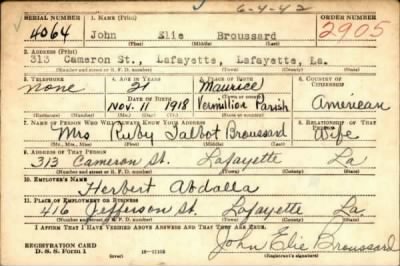 6-4-42
SERIAL NUMBER 1. NAME (Print) ORDER NUMBER
4064 John Elie Broussard 2905
(First) (Middle) (Last)
2. ADDRESS (Print)
313 Cameron St., Lafayette, Lafayette, La.
(Number and street or R. F. D. number) (Town) (County) (State)
3. TELEPHONE 4. AGE IN YEARS 5. PLACE OF BIRTH 6. COUNTRY OF CITIZENSHIP
none 21 Maurice
DATE OF BIRTH (Town or county)
Nov. 11 1918 Vermillion Parish American
(Exchange) (No.) (Mo.) (Day) (Yr.) (State or country)
7. NAME OF PERSON WHO WILL ALWAYS KNOW YOUR ADDRESS 8. RELATIONSHIP OF THAT PERSON
Mrs Ruby Talbot Broussard Wife
(Mr., Mrs., Miss) (First) (Middle) (Last)
9. ADDRESS OF THAT PERSON
313 Cameron St. Lafayette La
(Number and street or R. F. D. number) (Town) (County) (State)
10. EMPLOYER'S NAME
Herbert Abdalla
11. PLACE OF EMPLOYMENT OR BUSINESS
416 Jefferson St. Lafayette La
(Number and street or R. F. D. number) (Town) (County) (State)
I AFFIRM THAT I HAVE VERIFIED ABOVE ANSWERS AND THAT THEY ARE TRUE.
John Elie Broussard
REGISTRATION CARD
D. S. S. Form 1 (over) (Registrant's signature)